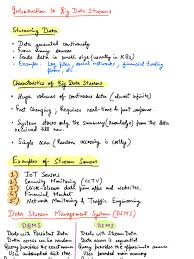 Introduction to Big Data Streams
Streaming Data
• Data generated continuously
• From many sources
• Sends data in small size (usually in KBs)
• Example: Log files, social networks, financial trading floors, etc.
Characteristics of Big Data Streams
• Huge volumes of continuous data (almost infinite)
• Fast changing & Requires real-time & fast response
• System stores only the summary (knowledge) from the data received till now.
• Single scan (Random access is costly)
Examples of Stream Sources
1 IoT Sensors
2 Security Monitoring (CCTV)
3 Click-stream data from apps and websites.
4 Financial Market
5 Network Monitoring & Traffic Engineering
Data Stream Management System (DSMS)
DBMS
DSMS
Deals with Persistent Data
Deals with Stream Data
Data access can be random
Data access is sequential